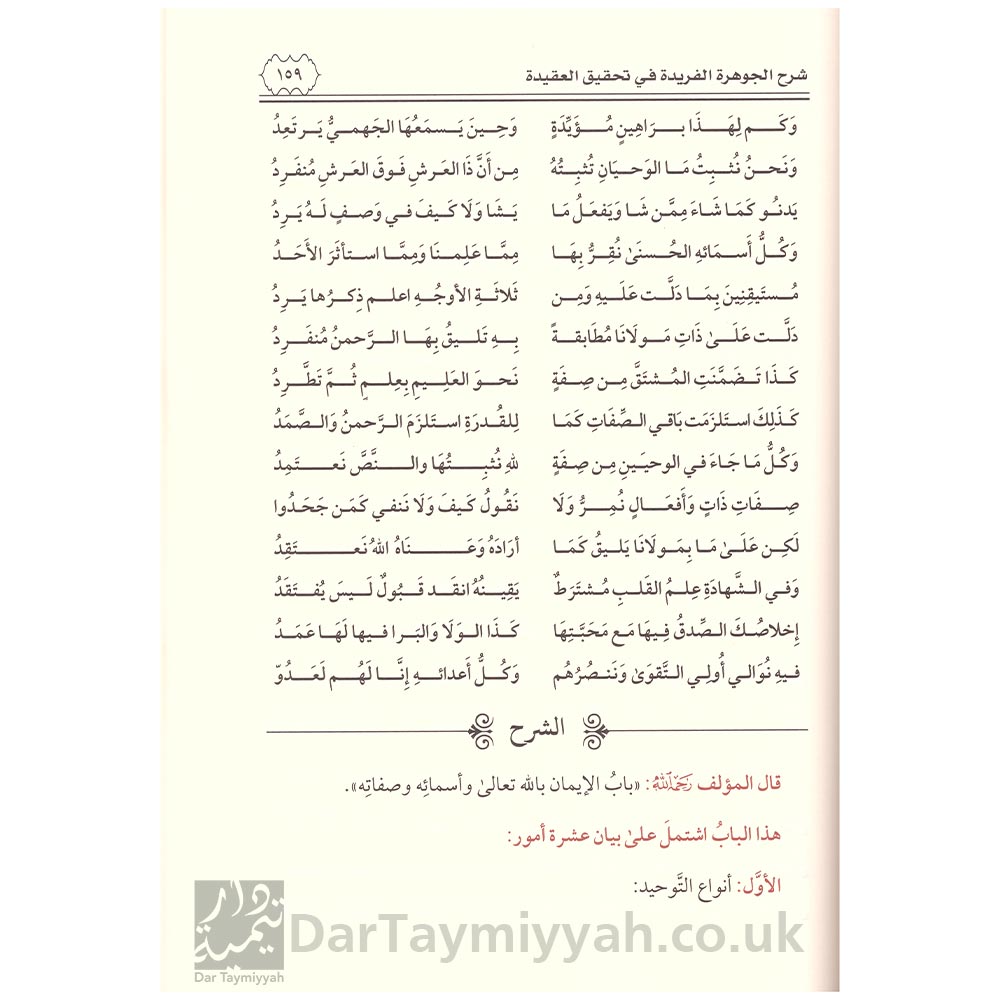 شرح الجوهرة الفريدة في تحقيق العقيدة ١٥٩
وَكَـم لِهَـذَا بـرَاهِينٍ مُـؤَيِّدَةٍ وَحِينَ يَسمَعُهَا الجَهميُّ يَرتَعِدُ
وَنَحنُ نُثبِتُ مَا الوَحيَانِ تُثبِتُهُ مِن أَنَّ ذَا العَرشِ فَوقَ العَرشِ مُنفَرِدُ
يَدنُو كَمَا شَاءَ مِمَّن شَا وَيَفعَلُ مَا يَشَا وَلَا كَيفَ في وَصفٍ لَهُ يَرِدُ
وَكُلُّ أَسمَائهِ الحُسنَىٰ نُقِرُّ بِهَا مِمَّا عَلِمنَا وَمِمَّا استأثَرَ الأَحَدُ
مُستَيقِنِينَ بِمَا دَلَّت عَلَيهِ وَمِن ثَلَاثَةِ الأوجُهِ اعلم ذِكرُها يَرِدُ
دَلَّت عَلَىٰ ذَاتِ مَولَانَا مُطَابقةً بِهِ تَليقُ بِهَا الرَّحمنُ مُنفَرِدُ
كَذَا تَضَمَّنَتِ المُشتَقَّ مِن صِفَةٍ نَحوَ العَلِيمِ بِعِلمٍ ثُمَّ تَطَّرِدُ
كَذَلِكَ استَلزَمَت بَاقي الصِّفَاتِ كَمَا لِلقُدرَةِ استَلزَمَ الرَّحمنُ وَالصَّمَدُ
وَكُلُّ مَا جَاءَ في الوحيَينِ مِن صِفَةٍ للهِ نُثبِتُهَا والنَّصَّ نَعتَمِدُ
صِفَاتِ ذَاتٍ وَأَفعَالٍ نُمِرُّ وَلَا نَقُولُ كَيفَ وَلَا نَنفي كَمَن جَحَدُوا
لَكِن عَلَىٰ مَا بِمَولَانَا يَليقُ كَمَا أرَادَهُ وَعَنَاهُ اللهُ نَعتَقِدُ
وَفي الشَّهادَةِ عِلمُ القَلبِ مُشتَرَطٌ يَقِينُهُ انقَد قَبُولٌ لَيسَ يُفتَقَدُ
إخلَاصُكَ الصِّدقُ فِيهَا مَع مَحَبَّتِهَا كَذَا الوَلَا وَالبَرا فيها لَهَا عَمَدُ
فيهِ نُوَالي أُولِي التَّقوَىٰ وَنَنصُرُهُم وَكُلُّ أَعدائـهِ إنَّا لَهُم لَعَدُوّ
الشرح
قال المؤلف رَحِمَهُ اللهُ: «بابُ الإيمان بالله تعالىٰ وأسمائِه وصفاتِه».
هذا البابُ اشتملَ علىٰ بيان عشرة أمور:
الأوَّل: أنواع التَّوحيد:
دار تيمية
Dar Taymiyyah
DarTaymiyyah.co.uk